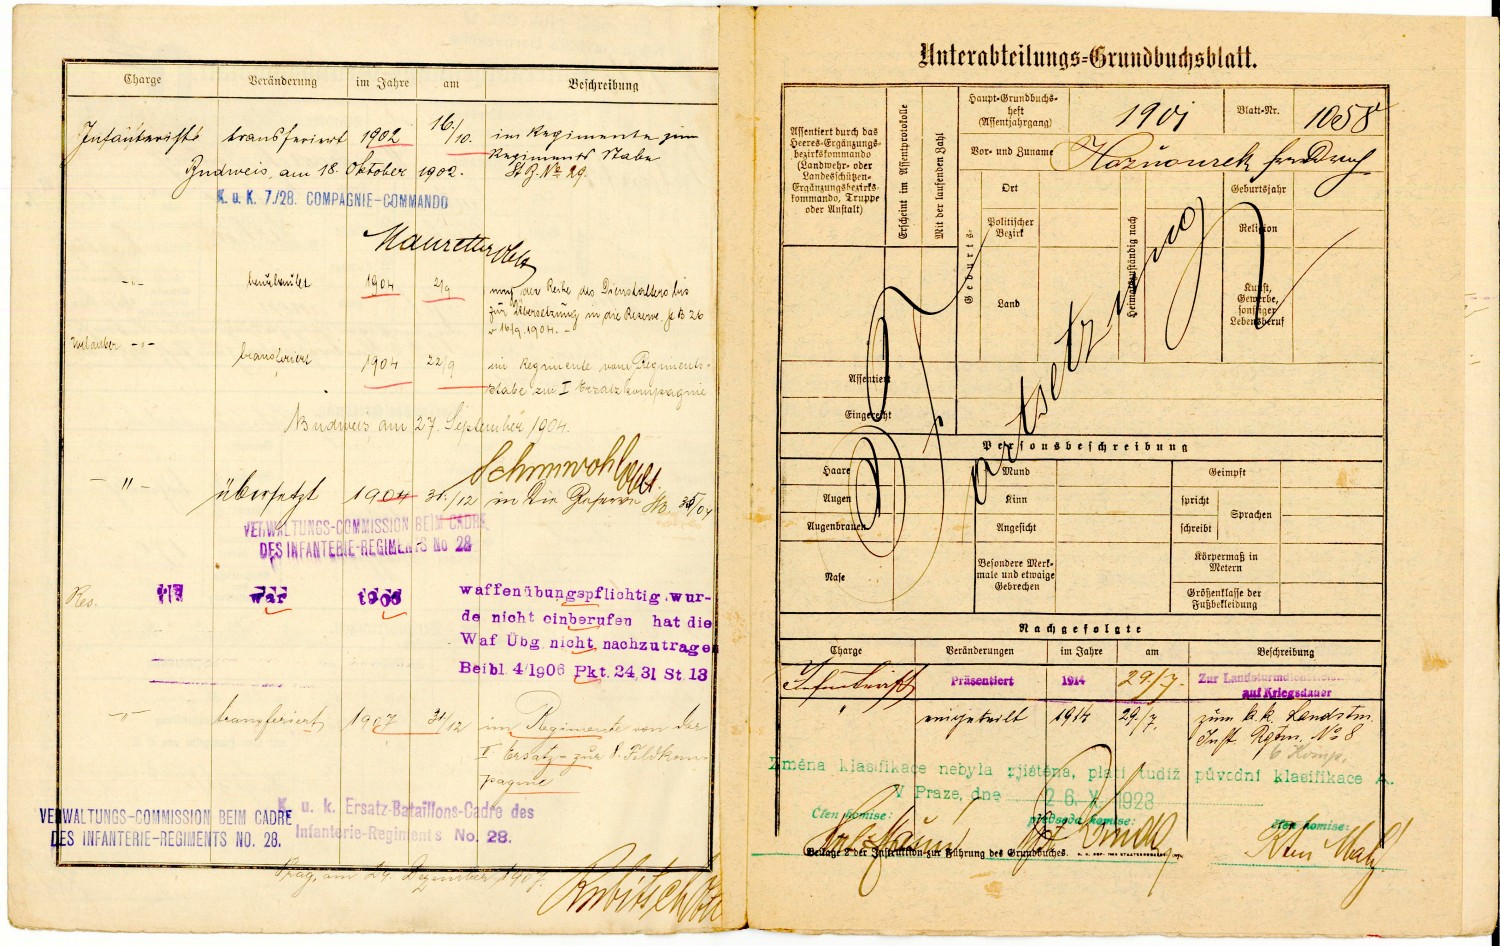 Charge Veränderung im Jahre am Beschreibung
Infanterist transferiert 1902 16/10. im Regimente zum
Regiments Stabe
Budweis, am 18. Oktober 1902. St. B. No 29.
K. u. K. 7./28. COMPAGNIE-COMMANDO
-"- beurlaubt 1904 2/9 nach der Reihe des Dienstalters bis
zur Übersetzung in die Reserve, J B 26
v 16/9. 1904. -
Urlauber -"- transferiert 1904 22/9 im Regimente vom Regiments-
stabe zur I Ersatzkompagnie
Budweis, am 27. September 1904.
-"- übersetzt 1904 31./12 in die Reserve
VERWALTUNGS-COMMISSION BEIM CADRE
DES INFANTERIE-REGIMENTS No 28
Res. war 1906 waffenübungspflichtig, wur-
de nicht einberufen hat die
Waf Übg. nicht nachzutragen
Beibl. 4/1906 Pkt. 24, 31 St. 13
-"- transferiert 1907 31/12 im Regimente von der
I Ersatz- zur 8. Feldkom-
pagnie
VERWALTUNGS-COMMISSION BEIM CADRE
DES INFANTERIE-REGIMENTS NO. 28.
K. u. k. Ersatz-Bataillons-Cadre des
Infanterie-Regiments No. 28.
Prag, am 29. Dezember 1907.
Unterabteilungs-Grundbuchsblatt.
Assentiert durch das
Heeres-Ergänzungs-
bezirkskommando
(Landwehr- oder
Landesschützen-
Ergänzungsbezirks-
kommando, Truppe
oder Anstalt)
Erscheint im Assentprotokolle
Mit der laufenden Zahl
Haupt-Grundbuchs-
heft
(Assentjahrgang)
1901
Blatt-Nr. 1058
Vor- und Zuname
Geburts-
Ort
Politischer
Bezirk
Land
Heimatszuständig nach
Geburtsjahr
Religion
Kunst,
Gewerbe,
sonstiger
Lebensberuf
Assentiert
Eingereiht
Fortsetzung
Personsbeschreibung
Haare Mund Geimpft
Augen Kinn spricht Sprachen
Augenbrauen Angesicht schreibt
Nase
Besondere Merk-
male und etwaige
Gebrechen
Körpermaß in
Metern
Größenklasse der
Fußbekleidung
Nachgefolgte
Charge Veränderungen im Jahre am Beschreibung
Infanterist Präsentiert 1914 29./7. Zur Landsturmdienst
auf Kriegsdauer
" eingeteilt 1914 29./7. zum k.k. Landstm.
Inft. Rgtm. No 8
6 Komp.
Změna klasifikace nebyla zjištěna, platí tudíž původní klasifikace A.
V Praze, dne 26. X. 1923
Člen komise: předseda komise: člen komise:
Beilage 2 der Instruktion zur Führung des Grundbuches.